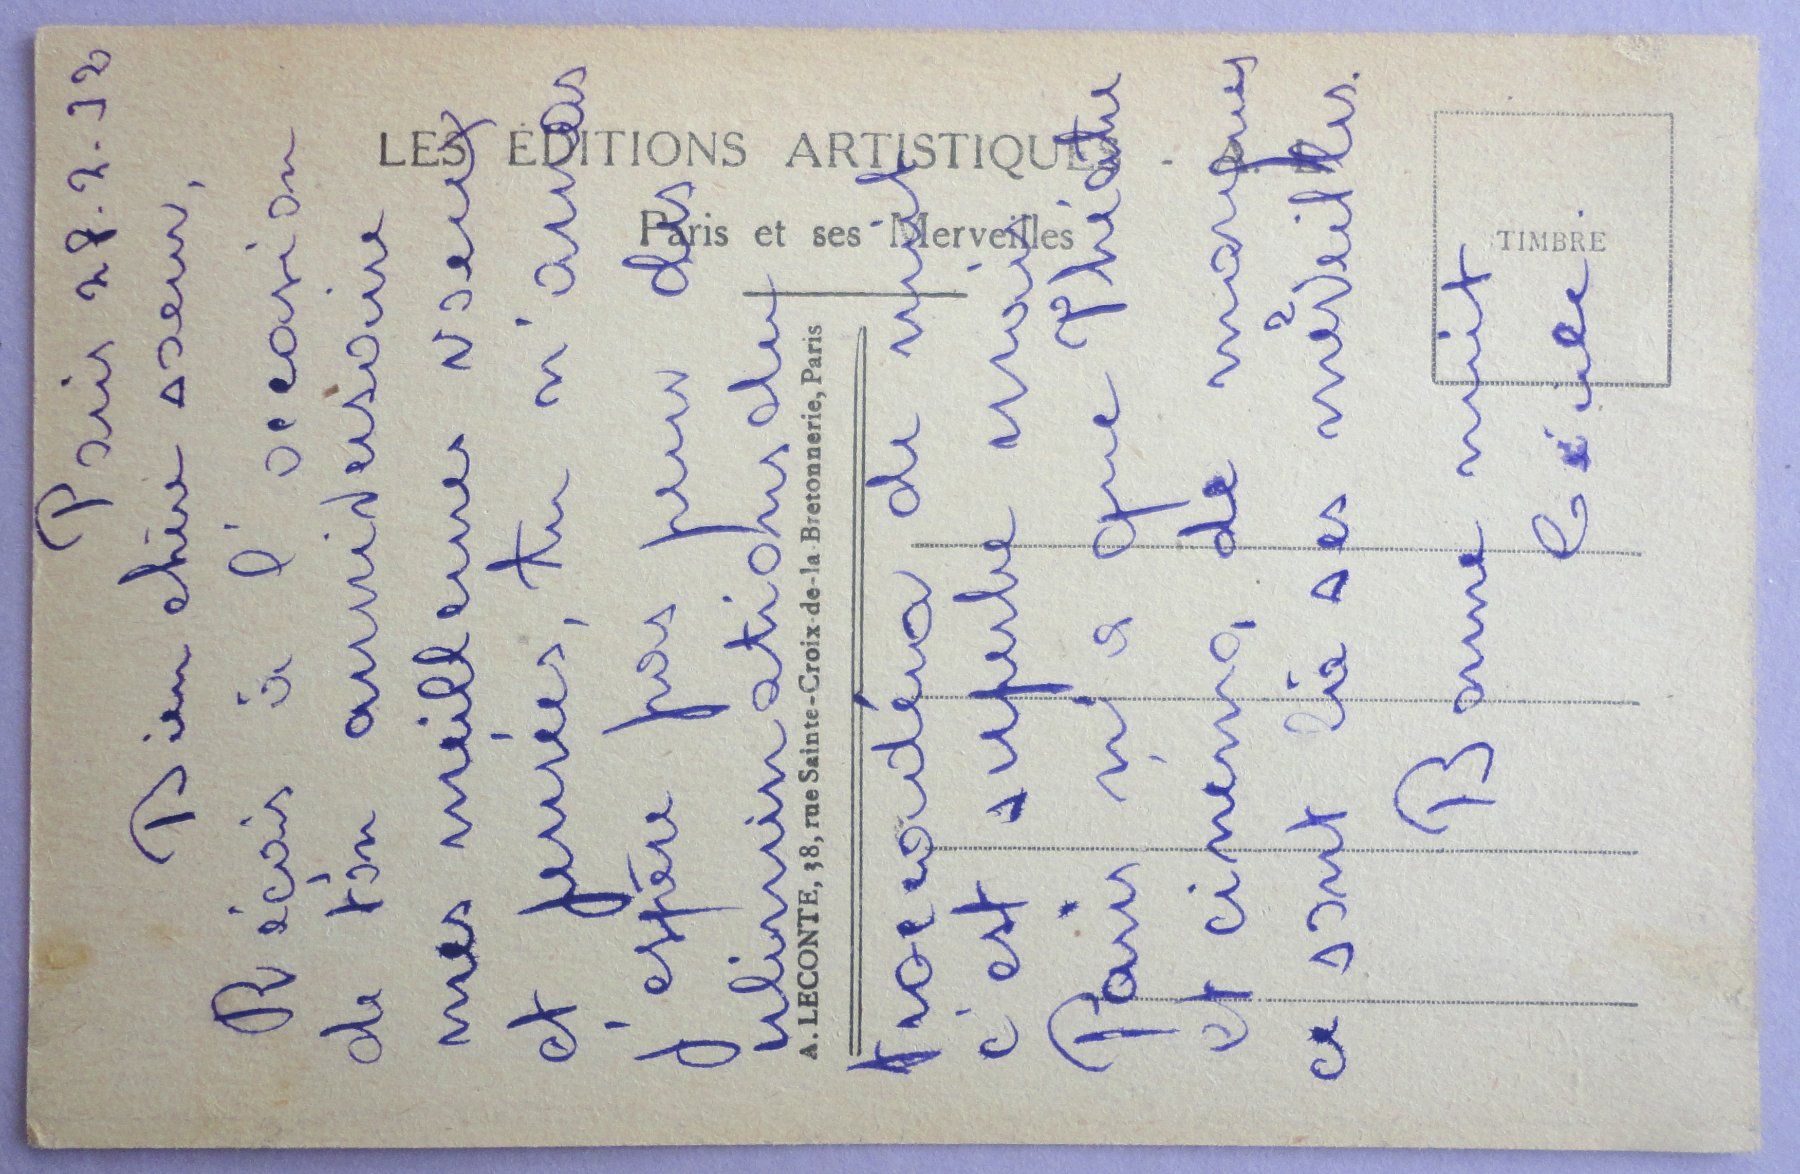 LES ÉDITIONS ARTISTIQUES -
Paris et ses Merveilles
A. LECONTE, 38, rue Sainte-Croix-de-la-Bretonnerie, Paris
TIMBRE
Paris 28-2-
Bien chère soeur,
Reçois à l'occasion
de ton anniversaire
mes meilleures voeux
et pensées, tu n'auras
j'espère pas peur des
illuminations du
Trocadéro de nuit
c'est superbe mais
Paris n'a que Théatre
et cinema, de marques
ce sont là ses mêrveilles.
Bonne nuit
Cécile.